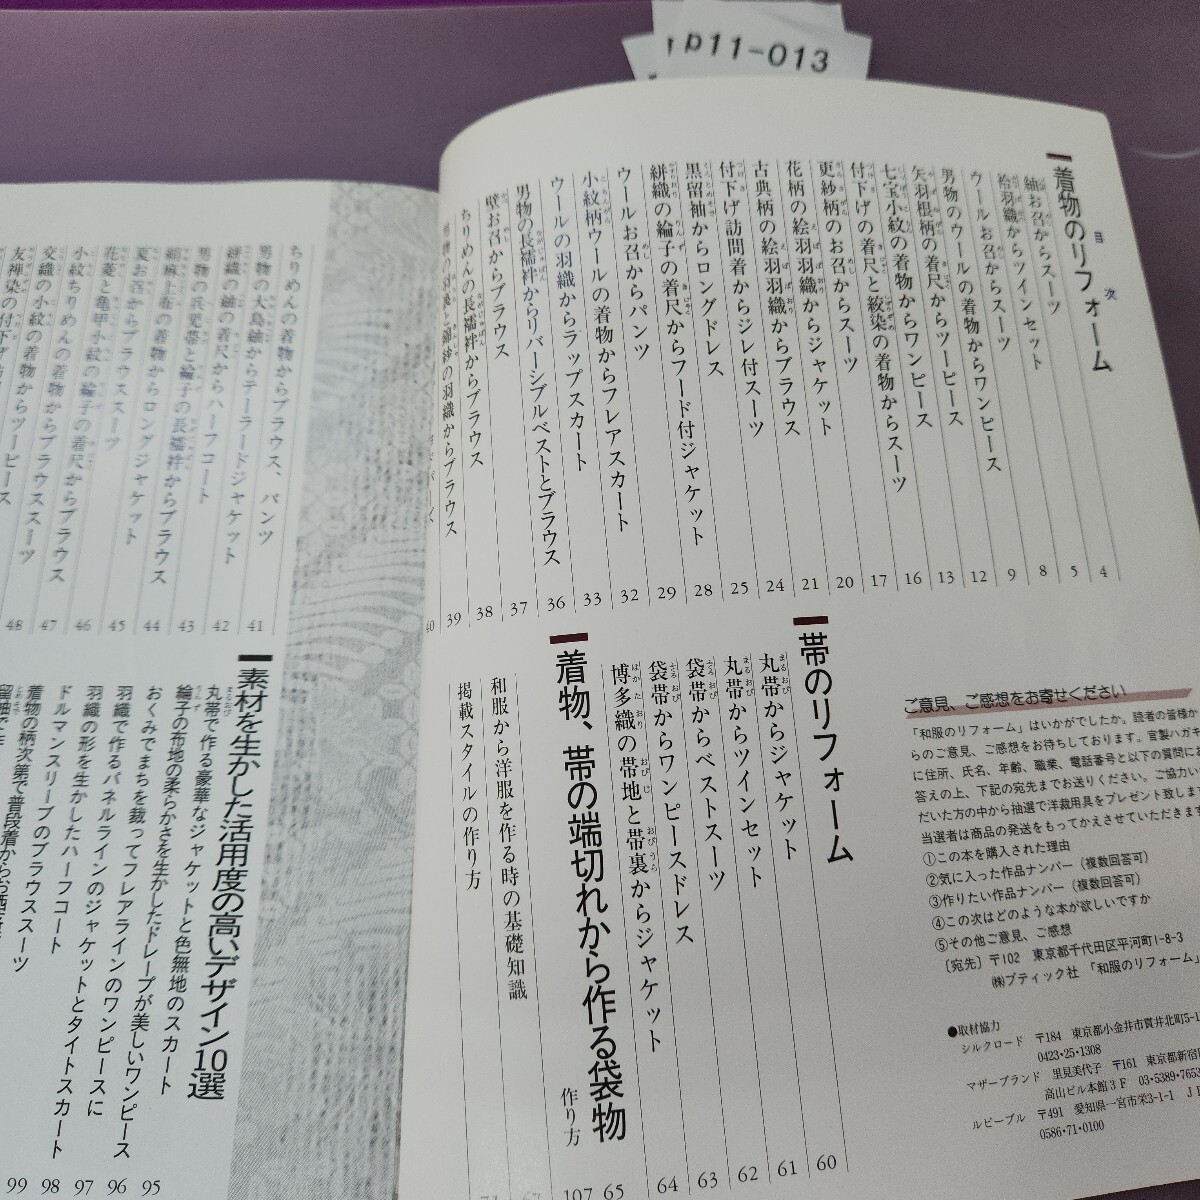 p11-013
目次
着物のリフォーム
紬お召からスーツ 4
袷羽織からツインセット 5
ウールお召からスーツ 8
男物のウールの着物からワンピース 9
矢羽根柄の着尺からツーピース 12
七宝小紋の着物からワンピース 13
付下げの着尺と絞染の着物からスーツ 16
更紗柄のお召からスーツ 17
花柄の絵羽羽織からジャケット 20
古典柄の絵羽羽織からブラウス 21
付下げ訪問着からジレ付スーツ 24
黒留袖からロングドレス 25
絣織の綸子の着尺からフード付ジャケット 28
ウールお召からパンツ 29
小紋柄ウールの着物からフレアスカート 32
ウールの羽織からラップスカート 33
男物の長襦袢からリバーシブルベストとブラウス 36
壁お召からブラウス 37
ちりめんの長襦袢からブラウス 38
39
40
ちりめんの着物からブラウス、パンツ 41
男物の大島紬からテーラードジャケット 42
絣織の紬の着尺からハーフコート 43
男物の兵児帯と綸子の長襦袢からブラウス 44
の着物からロングジャケット 45
夏お召からブラウススーツ 46
花菱と亀甲小紋の綸子の着尺からブラウス 47
小紋ちりめんの着物からブラウススーツ 48
交織の小紋の着物からツーピース
友禅染の付下げ
帯のリフォーム
丸帯からジャケット 60
丸帯からツインセット 61
袋帯からベストスーツ 62
袋帯からワンピースドレス 63
博多織の帯地と帯裏からジャケット 64
着物、帯の端切れから作る袋物 65
作り方 107
和服から洋服を作る時の基礎知識
掲載スタイルの作り方
素材を生かした活用度の高いデザイン10選
丸帯で作る豪華なジャケットと色無地のスカート
綸子の布地の柔らかさを生かしたドレープが美しいワンピース 95
おくみでまちを裁ってフレアラインのワンピースに 96
羽織で作るパネルラインのジャケットとタイトスカート 97
羽織の形を生かしたハーフコート 98
ドルマンスリーブのブラウススーツ 99
着物の柄次第で普段着からお洒落
ご意見、ご感想をお寄せください
「和服のリフォーム」はいかがでしたか。読者の皆様か
らのご意見、ご感想をお待ちしております。官製ハガキ
に住所、氏名、年齢、職業、電話番号と以下の質問にお
答えの上、下記の宛先までお送りください。ご協力い
だいた方の中から抽選で洋裁用具をプレゼント致します
当選者は商品の発送をもってかえさせていただきます
①この本を購入された理由
②気に入った作品ナンバー（複数回答可）
③作りたい作品ナンバー（複数回答可）
④この次はどのような本が欲しいですか
⑤その他ご意見、ご感想
〔宛先〕〒102 東京都千代田区平河町1-8-3
㈱ブティック社 「和服のリフォーム」
●取材協力
シルクロード 〒184 東京都小金井市貫井北町5-1
0423・25・1308
マザーブランド 里見美代子 〒161 東京都新宿
高山ビル本館3F 03・5389・7653
ルビーブル 〒491 愛知県一宮市栄3-1-1
0586・71・0100